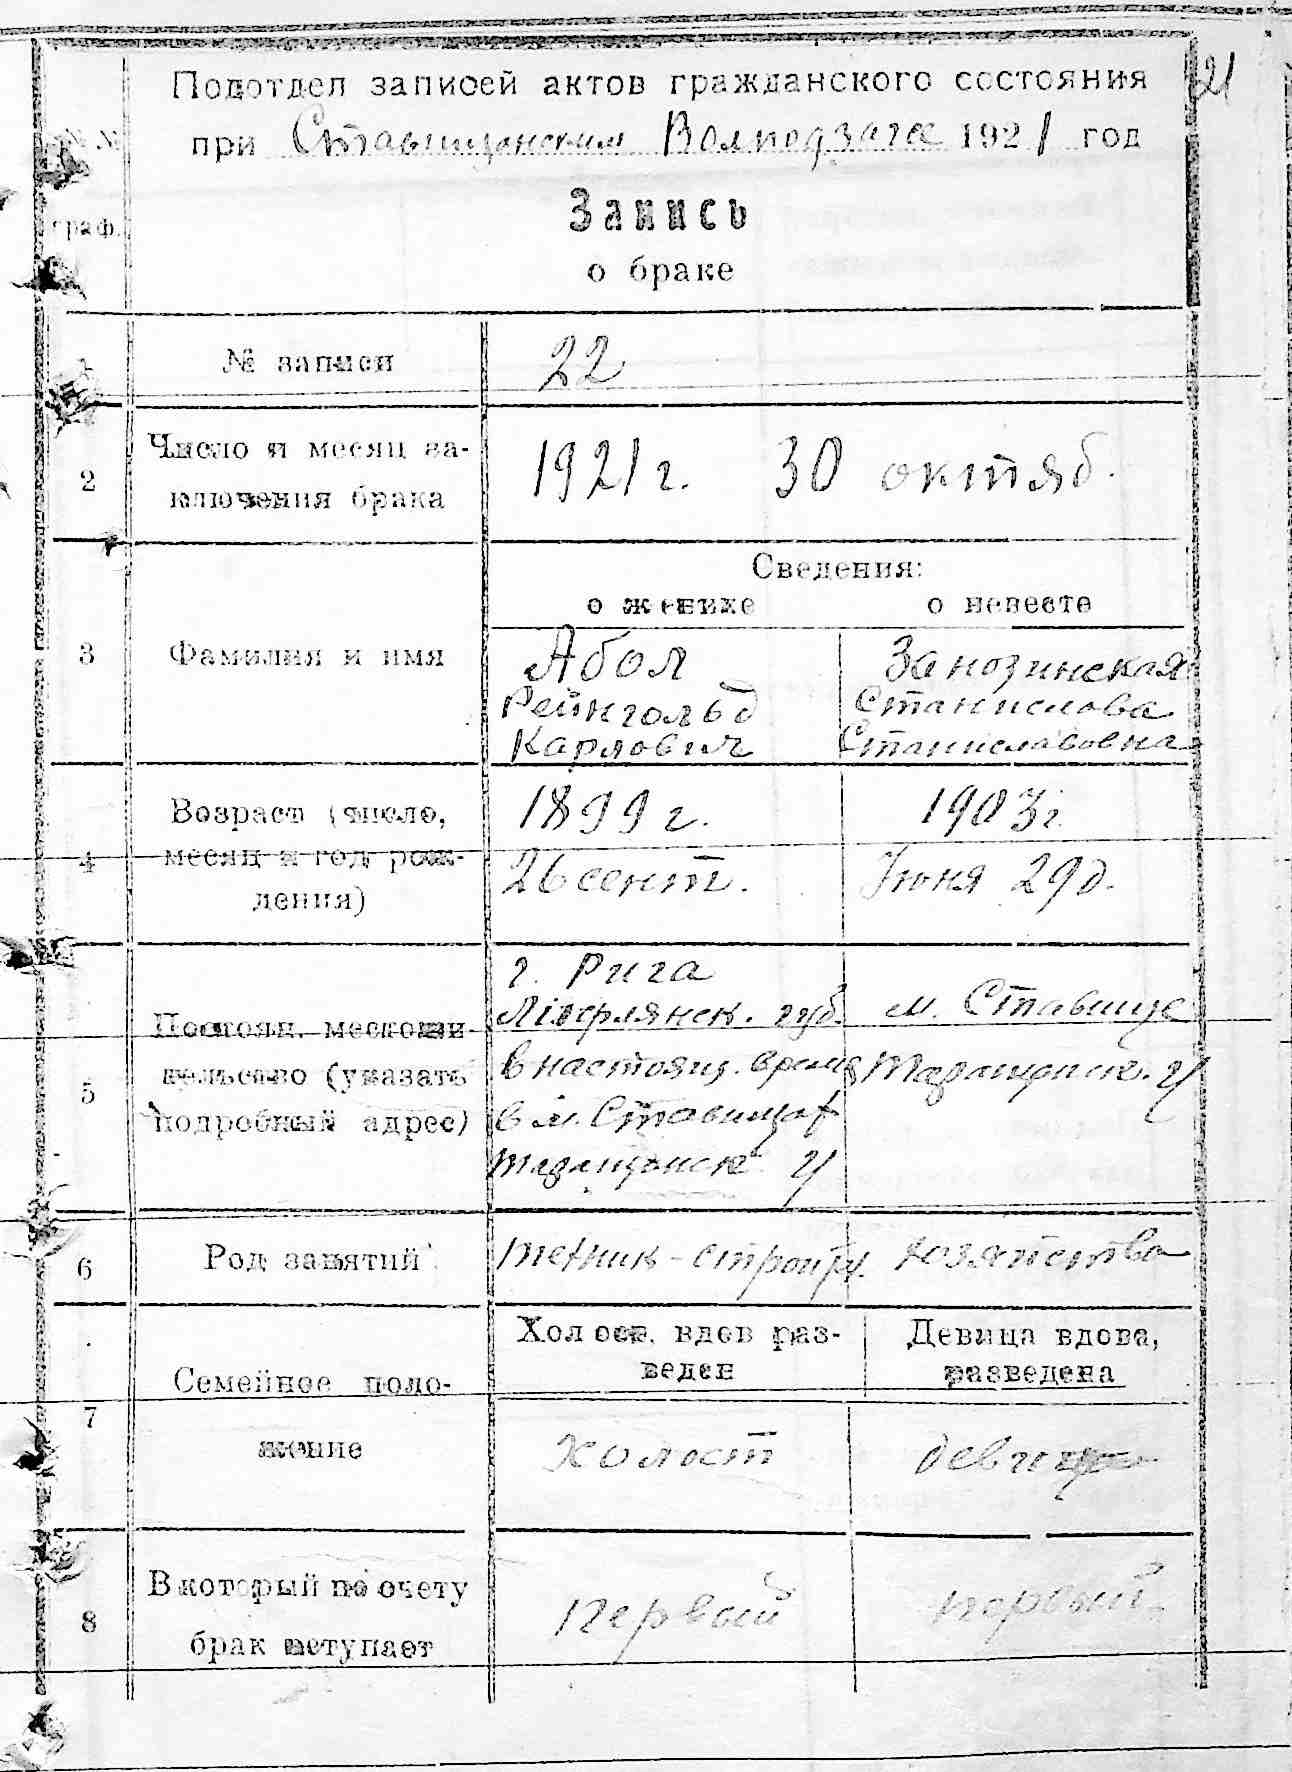 21
Подотдел записей актов гражданского состояния
при Ставищанским Волподзагсе 1921 год
№№
граф.
Запись
о браке
1 № записи 22
2 Число и месяц за-
ключения брака
1921 г. 30 октяб.
Сведения:
о женихе о невесте
3 Фамилия и имя
Абол
Рейнгольд
Карлович
Занозинская
Станислова
Станиславовна
4 Возраст (число,
месяц и год рож-
дения)
1899 г.
26 сент.
1903 г.
Июня 29 д.
5 Постоян. местожи-
тельство (указать
подробный адрес)
г. Рига
губ.
в настоящ. время
в м. Ставищах
Таращанск. у
м. Ставище
Таращанск. у
6 Род занятий
техник - строит. хозяйство
7 Семейное поло-
жение
Холост, вдов раз-
веден
Девица вдова,
разведена
холост девица
8 В который по счету
брак вступает
первый первый